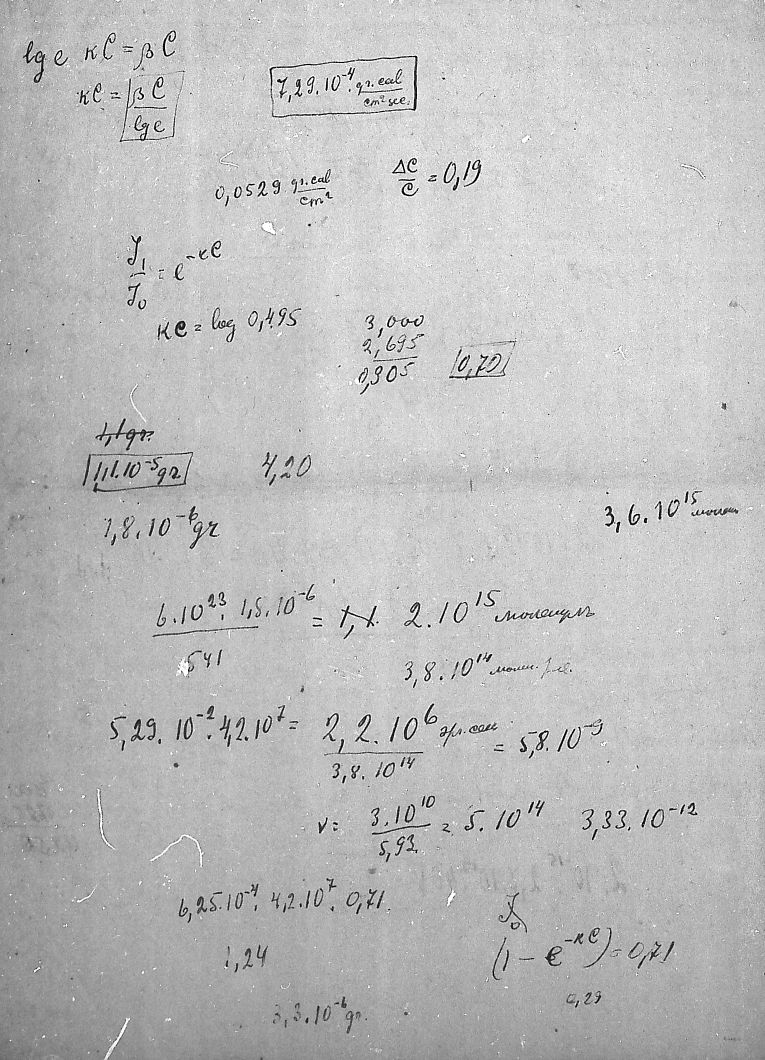 lg e κC = βC
κC = βC / lg e
7,29.10⁻⁴ gr.cal / cm² sec.
0,0529 gr.cal / cm²
ΔC / C = 0,19
J₁ / J₀ = e^−κC
κC = log 0,495
3,000
2,695
0,305
0,70
1,1 gr.
1,1.10⁻⁵ gr
4,20
1,8.10⁻⁶ gr
3,6.10¹⁵
6.10²³. 1,5.10⁻⁶ / 541 = 1,1. 2.10¹⁵ молекулъ
3,8.10¹⁴
5,29.10⁻².4,2.10⁷ = 2,2.10⁶ / 3,8.10¹⁴ = 5,8.10⁻⁹
ν = 3.10¹⁰ / 5,93 = 5.10¹⁴ 3,33.10⁻¹²
6,25.10⁻⁴. 4,2.10⁷. 0,71.
J₀
1,24
(1 − e^−κC) = 0,71
0,29
3,3.10⁻⁶ gr.